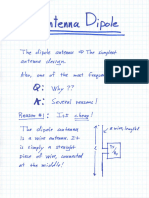 Antenna Dipole
The dipole antenna is the simplest
antenna design.
Also, one of the most freq
Q: Why??
A: Several reasons!
Reason #1: It's cheap!
The dipole antenna
is a wire antenna. It
is simply a straight
piece of wire, connected
at the middle!